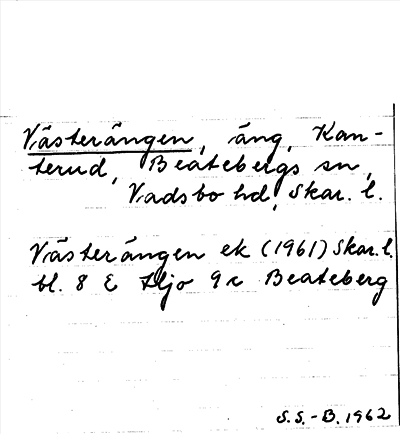 Västerängen, äng, Kan-
terud, Beatebergs sn,
Vadsbo hd, Skar. l.
Västerängen ek (1961) Skar. l.
bl. 8 E Hjo 9 c Beateberg
S.S.-B. 1962